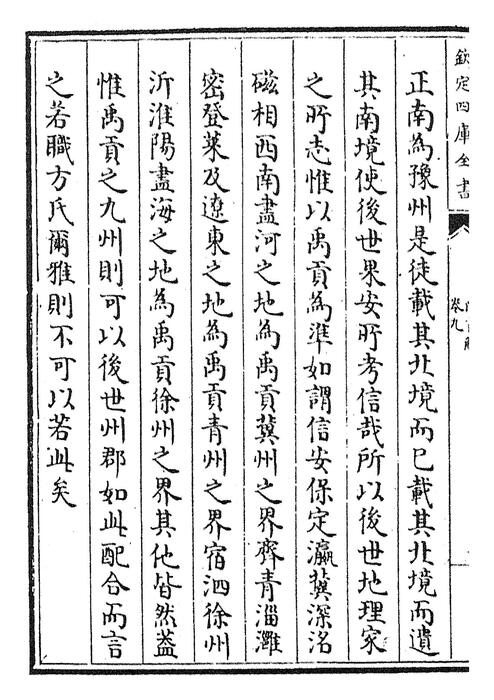 欽定四庫全書
卷九
正南為豫州是徒載其北境而已載其北境而遺
其南境使後世果安所考信哉所以後世地理家
之所志惟以禹貢為準如謂信安保定瀛冀深洺
磁相西南盡河之地為禹貢冀州之界齊青淄濰
密登萊及遼東之地為禹貢青州之界宿泗徐州
沂淮陽盡海之地為禹貢徐州之界其他皆然葢
惟禹貢之九州則可以後世州郡如此配合而言
之若職方氏爾雅則不可以若此矣